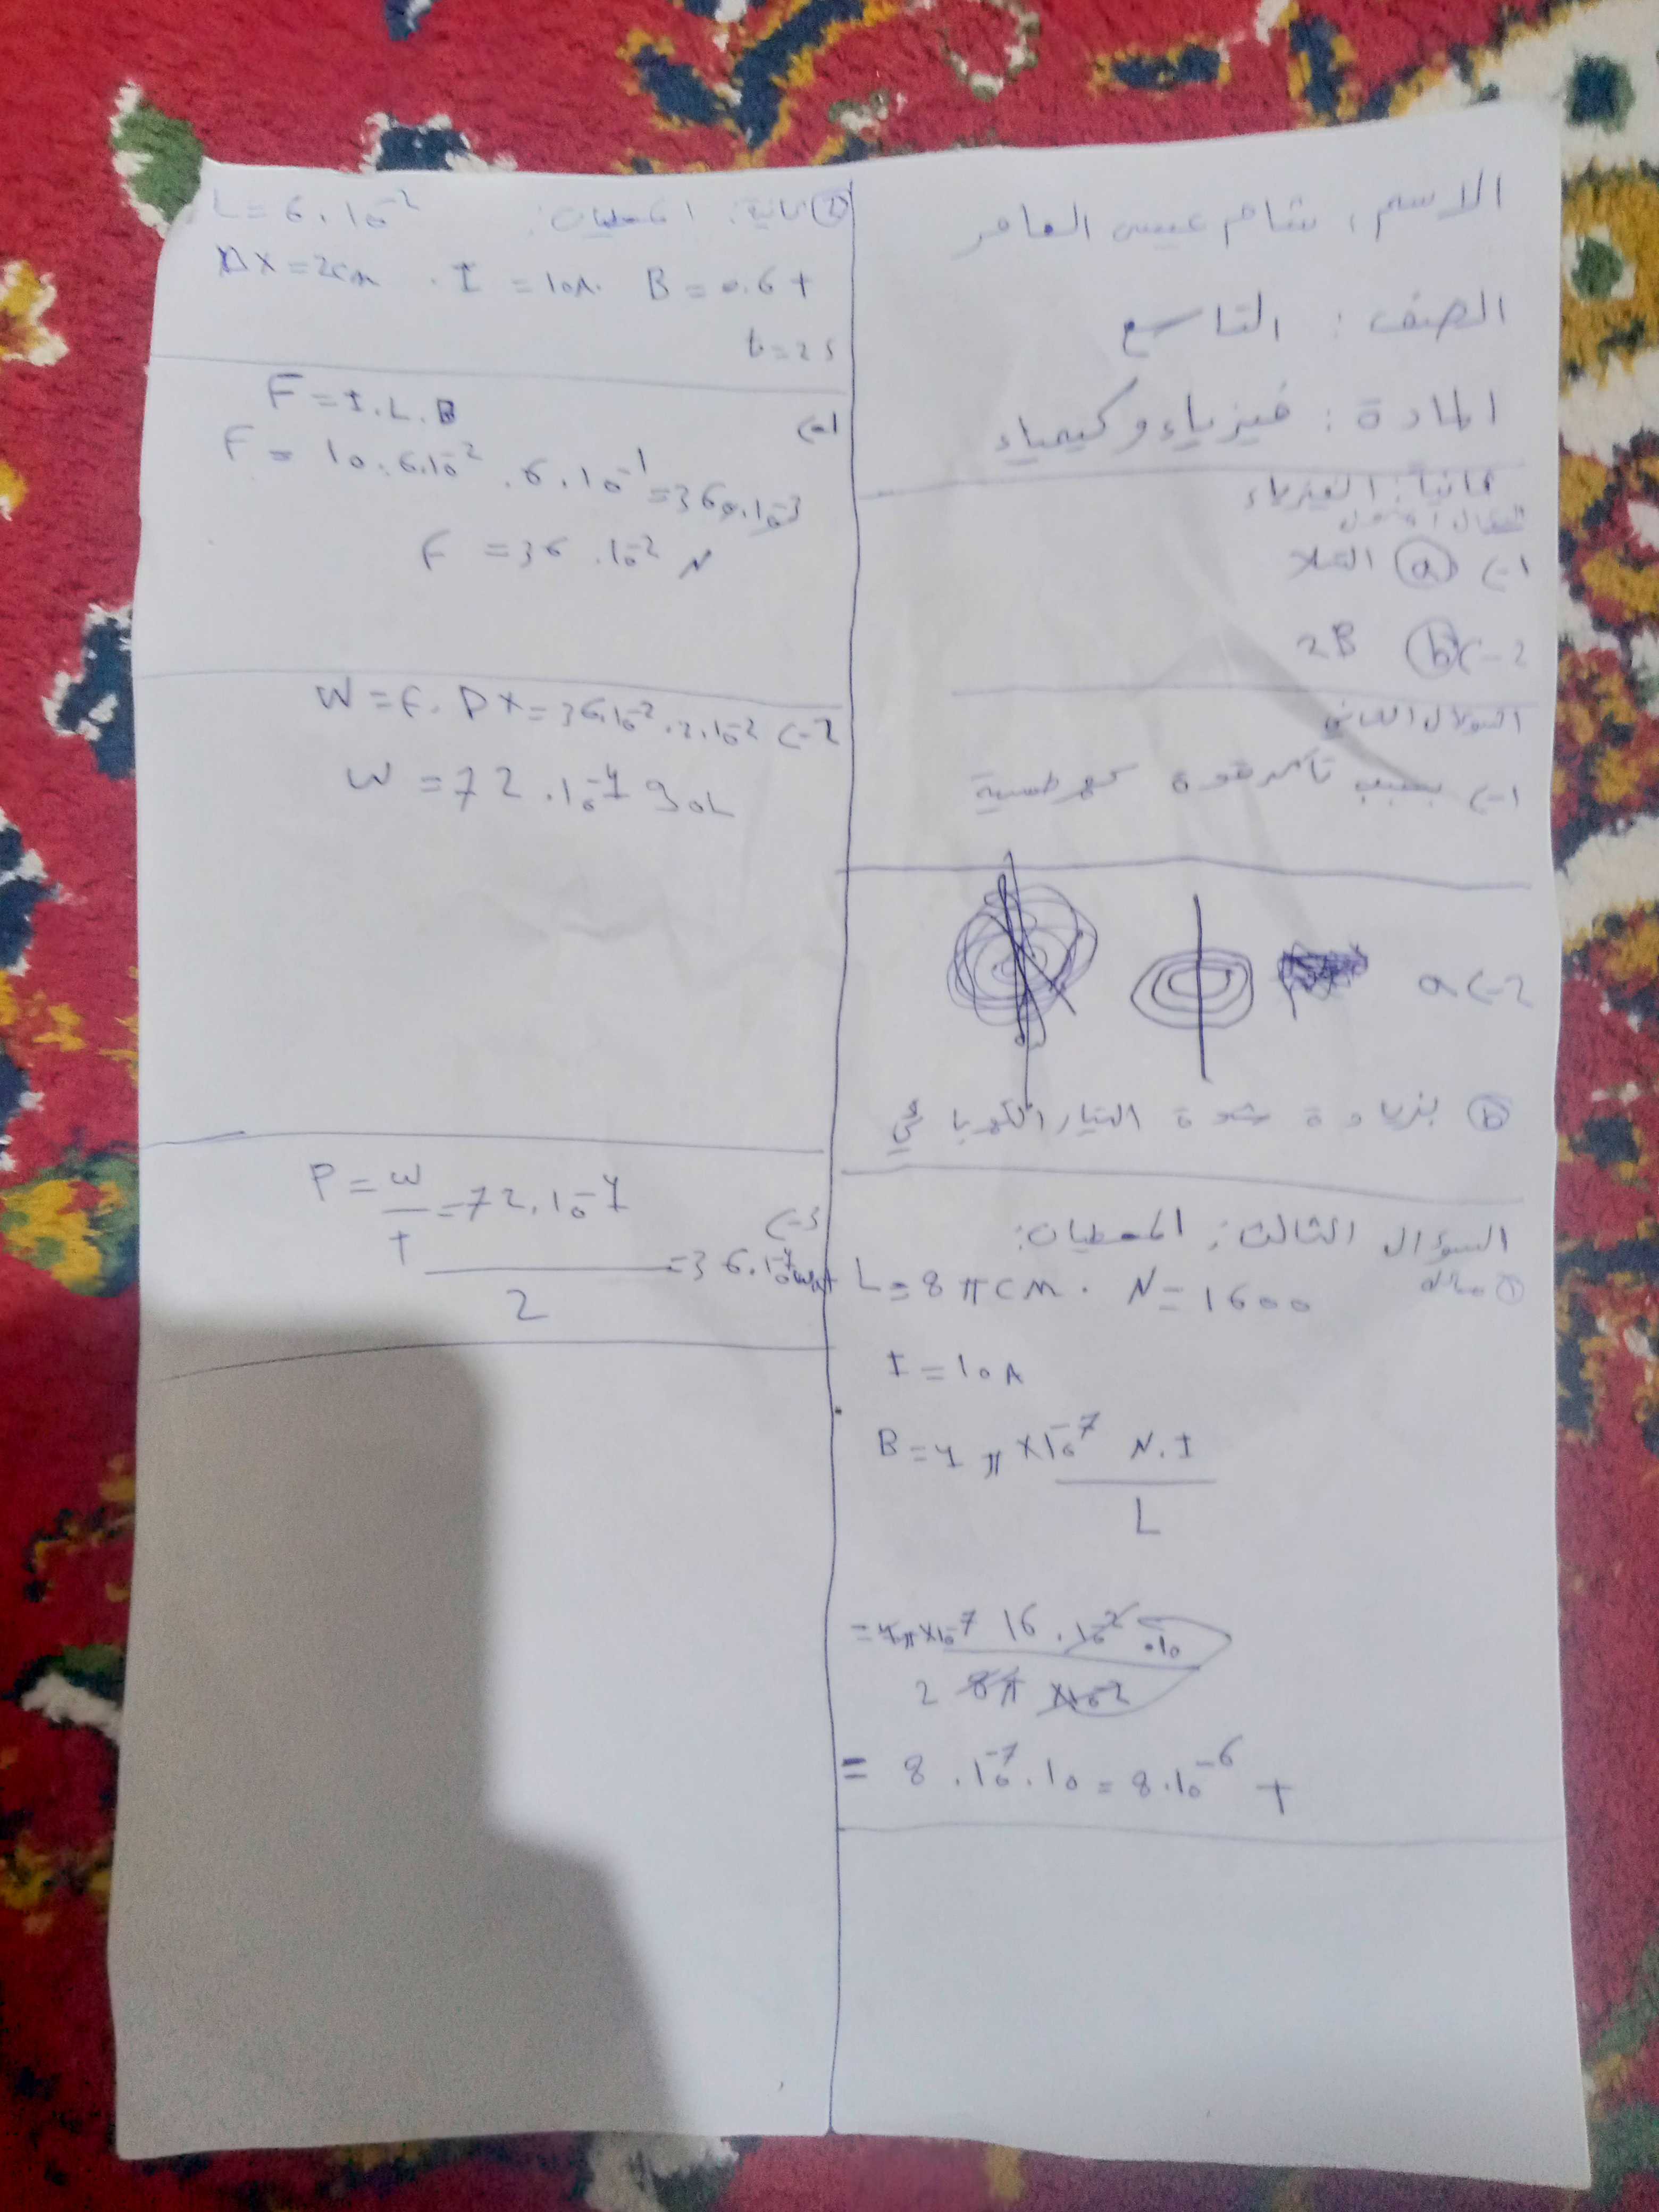 الاسم: شام عيسى العامر
الصف: التاسع
المادة: فيزياء وكيمياء
ثانياً: الفيزياء
السؤال الأول
1-) a التسلا
2-) b 2B
السؤال الثاني
1-) بسبب تأثير قوة كهرطيسية
2-) a
b بزيادة شدة التيار الكهربائي
السؤال الثالث: المعطيات:
① L = 8 π cm . N = 1600
I = 10 A
B = 4 π × 10⁻⁷ N.I
L
= 4π × 10⁻⁷ 16 . 10² .10
2 8π × 10⁻²
= 8 . 10⁻⁷ . 10 = 8 . 10⁻⁶ T
② ثانية: المعطيات: L = 6 . 10⁻²
Δx = 2cm . I = 10A . B = 0.6 T
t = 2 s
1-) F = I . L . B
F = 10 . 6.10⁻² . 6 . 10⁻¹ = 360.10⁻³
F = 36 . 10⁻² N
2-) W = F . Δx = 36.10⁻² . 2.10⁻²
W = 72 . 10⁻⁴ JoL
3-) P = W = 72 . 10⁻⁴ = 36.10⁻⁴ wat
T
2